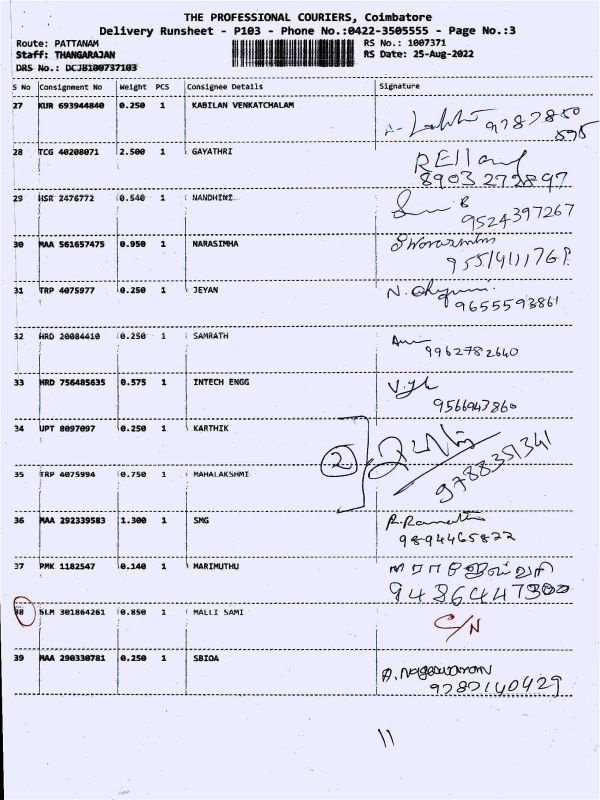 THE PROFESSIONAL COURIERS, Coimbatore
Delivery Runsheet - P103 - Phone No.:0422-3505555 - Page No.:3
Route: PATTANAM RS No.: 1007371
Staff: THANGARAJAN RS Date: 25-Aug-2022
DRS No.: DCJB100737103
S No Consignment No Weight PCS Consignee Details Signature
27 KUR 693944840 0.250 1 KABILAN VENKATCHALAM
28 TCG 40208071 2.500 1 GAYATHRI
8903272897
29 HSR 2476772 0.540 1 NANDHINI
9524397267
30 MAA 561657475 0.950 1 NARASIMHA
31 TRP 4075977 0.250 1 JEYAN
9655593861
32 HRD 20084410 0.250 1 SAMRATH
9962782640
33 HRD 756485635 0.575 1 INTECH ENGG
9566947860
34 UPT 8097097 0.250 1 KARTHIK
2
9788351341
35 TRP 4075994 0.750 1 MAHALAKSHMI
36 MAA 292339583 1.300 1 SMG
9894465822
37 PMK 1182547 0.140 1 MARIMUTHU
38 SLM 301864261 0.850 1 MALLI SAMI C/N
39 MAA 290330781 0.250 1 SBIOA
11